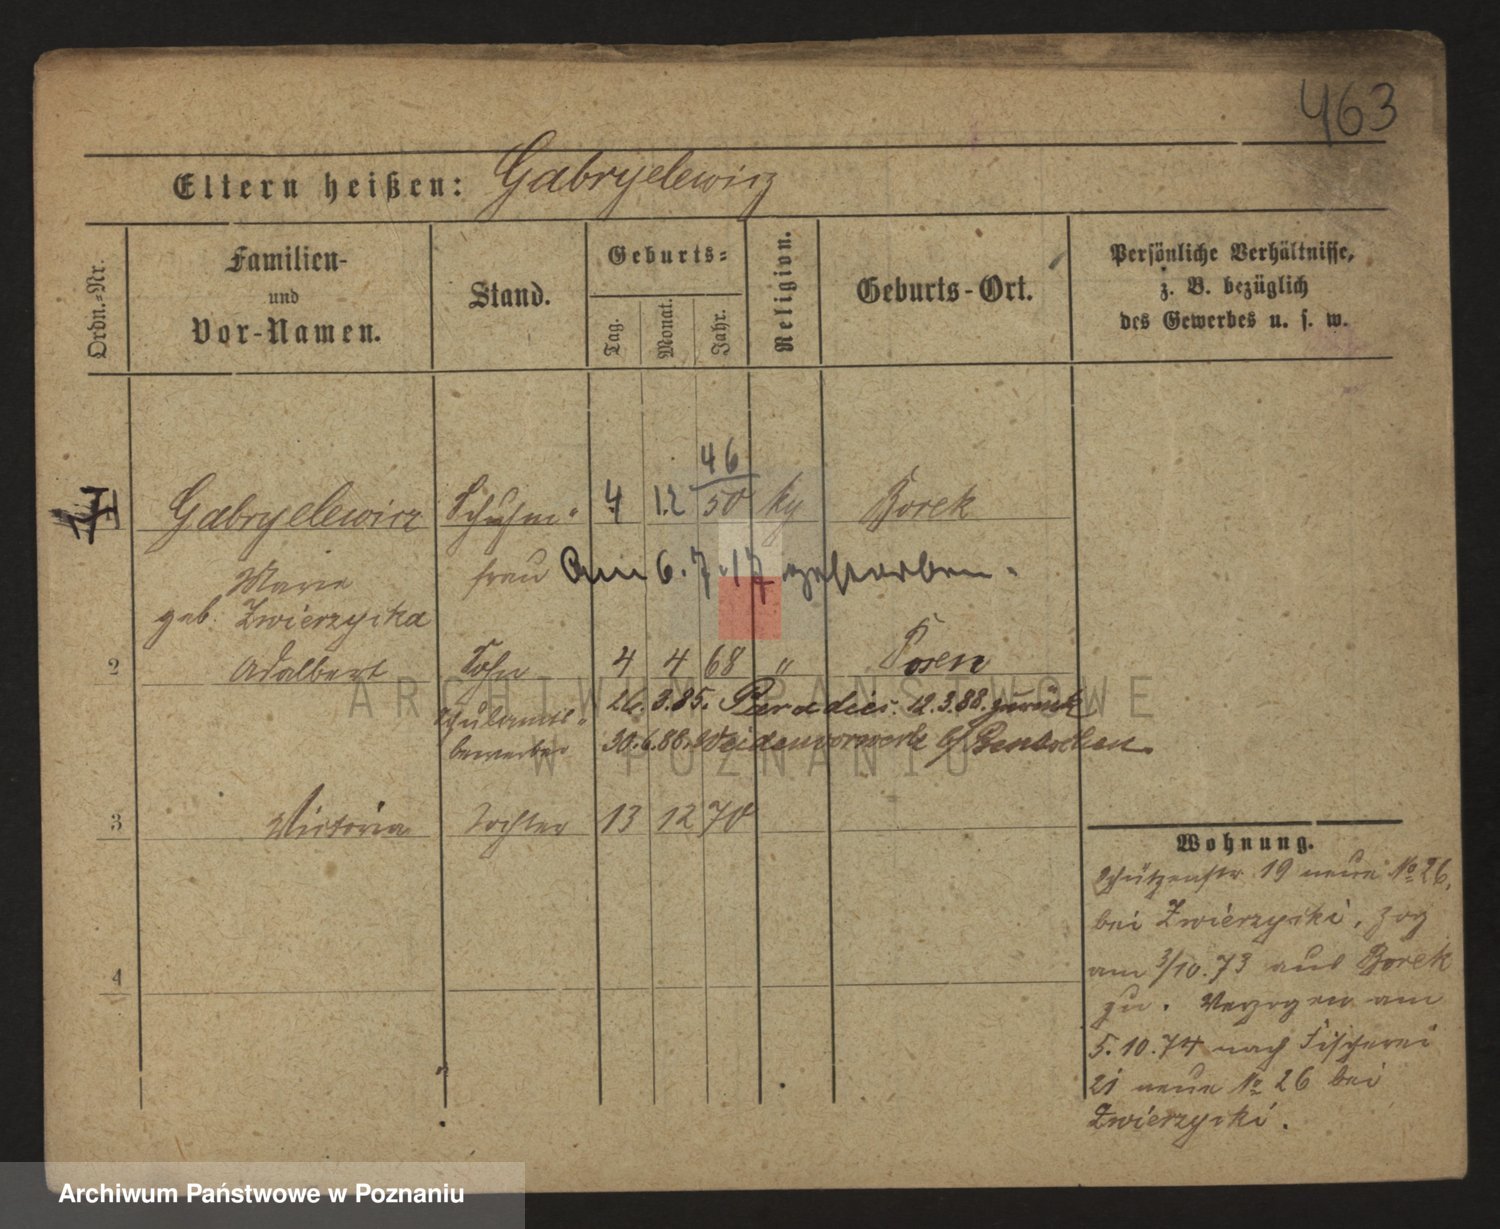 463
Eltern heißen: Gabryelewicz
Ordn.=Nr.
Familien-
und
Vor-Namen.
Stand.
Geburts=
Tag.
Monat.
Jahr.
Religion.
Geburts-Ort.
Persönliche Verhältnisse,
z. B. bezüglich
des Gewerbes u. s. w.
46
Gabryelewicz Schuhm= 4 12 50 kg Borek
Marie frau Am 6.7.17 gestorben.
geb. Zwierzycka
2 Adalbert Sohn 4 4 68 " Posen
Schulamts= 26.3.85. Paradies. 12.3.88. zurück
bewerber 30.6.88 Weidenvorwerk b/ Bentschen.
3 Victoria Tochter 13 12 70
4
Wohnung.
Schützenstr 19 neue No 26,
bei Zwierzycki, zog
am 3/10.73 aus Borek
zu. Verzogen am
5.10.74 nach Fischerei
21 neue No 26 bei
Zwierzycki.
ARCHIWUM PAŃSTWOWE
W POZNANIU
Archiwum Państwowe w Poznaniu